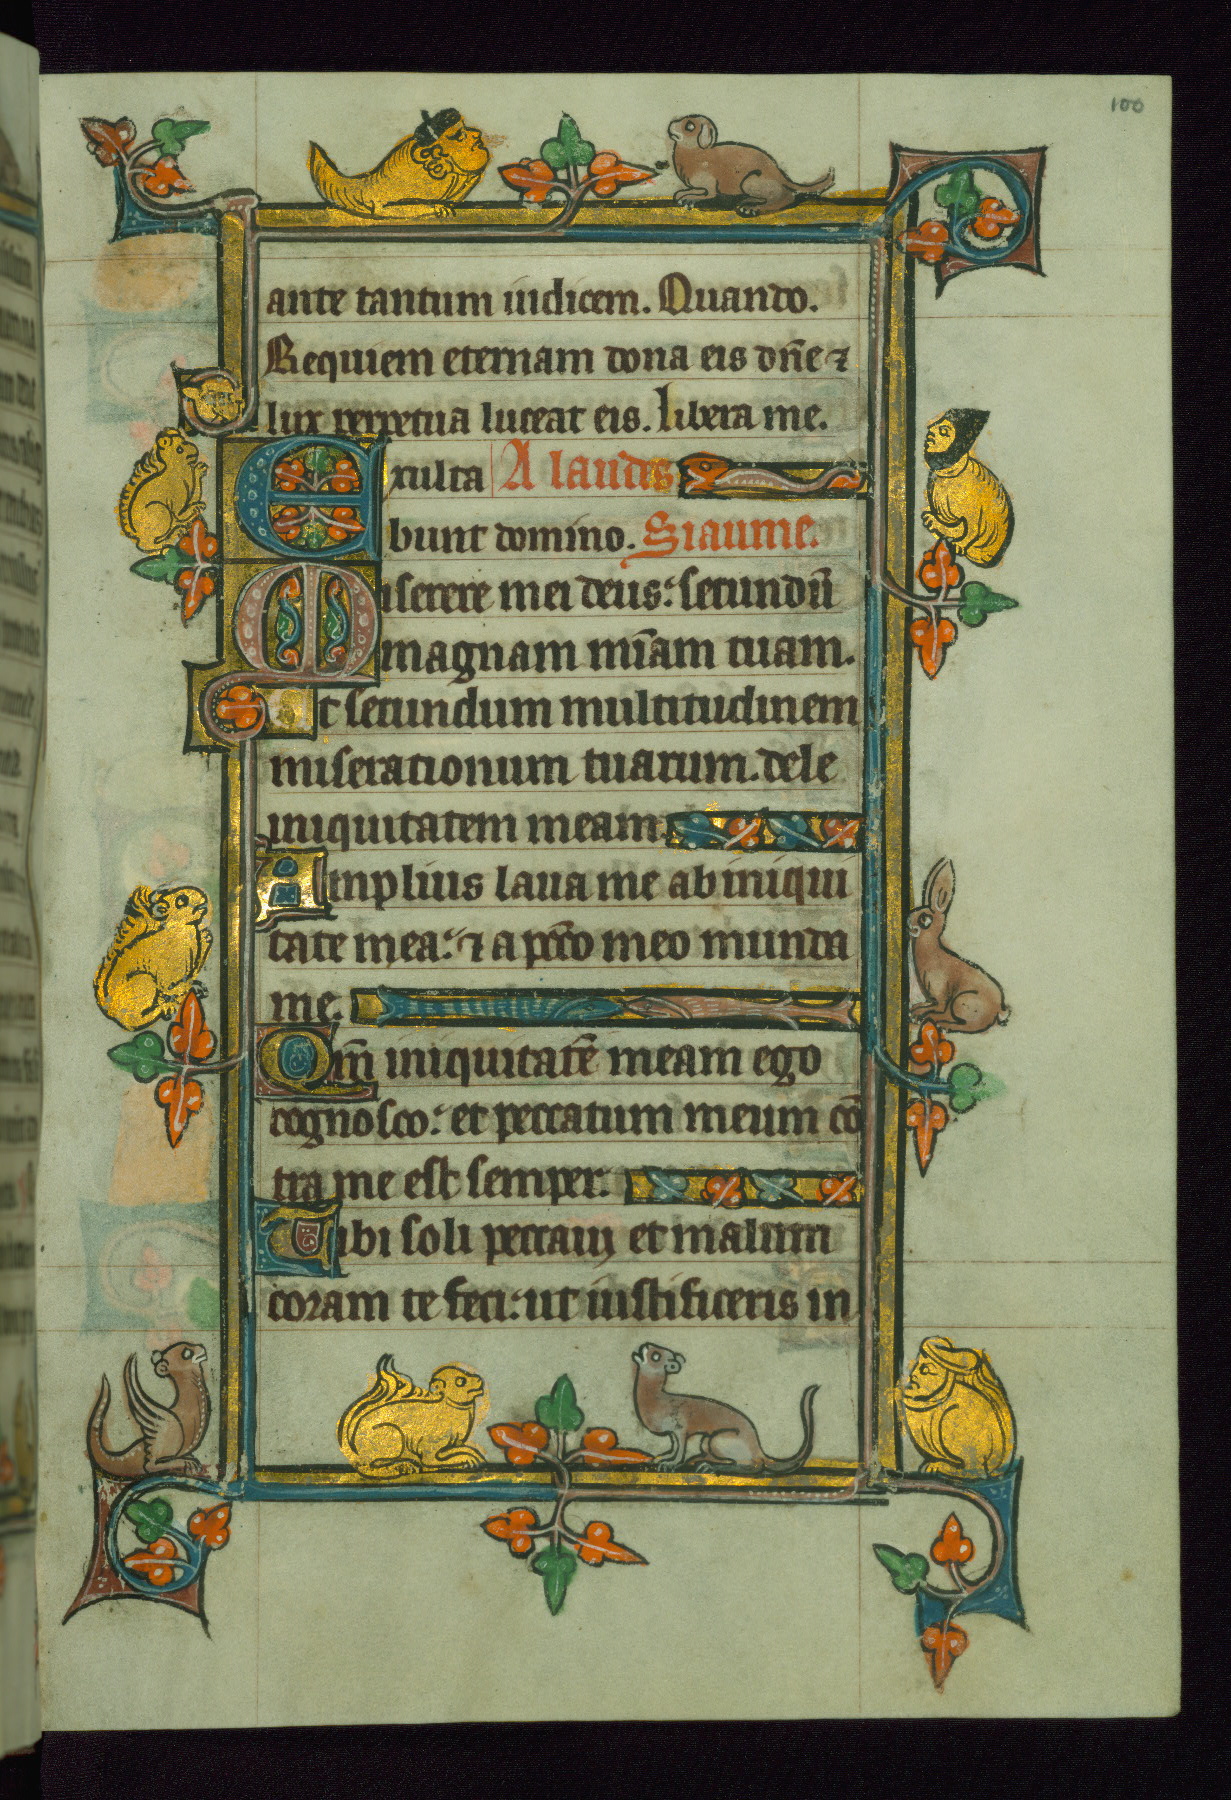 100
ante tantum iudicem. Quando.
Requiem eternam dona eis dn̄e ⁊
lux perpetua luceat eis. Libera me.
Exulta A laudes
bunt domino. Siaume.
Miserere mei deus: secundū
magnam mīam tuam.
Et secundum multitudinem
miserationum tuarum. dele
iniquitatem meam.
Amplius laua me ab iniqui
tate mea: ⁊ a pcc̄o meo munda
me.
Qm̄ iniquitatē meam ego
cognosco: et peccatum meum cō
tra me est semper.
Tibi soli peccaui et malum
coram te feci: ut iustificeris in